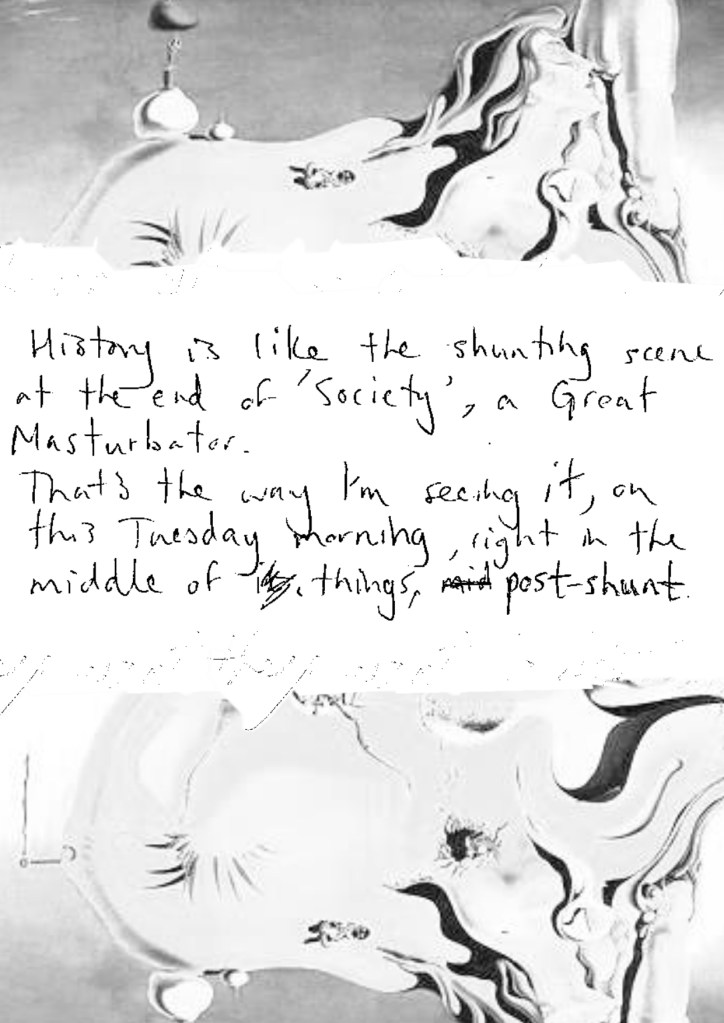 History is like the shunting scene
at the end of 'Society', a Great
Masturbator.
That's the way I'm seeing it, on
this Tuesday morning, right in the
middle of things, mid post-shunt.